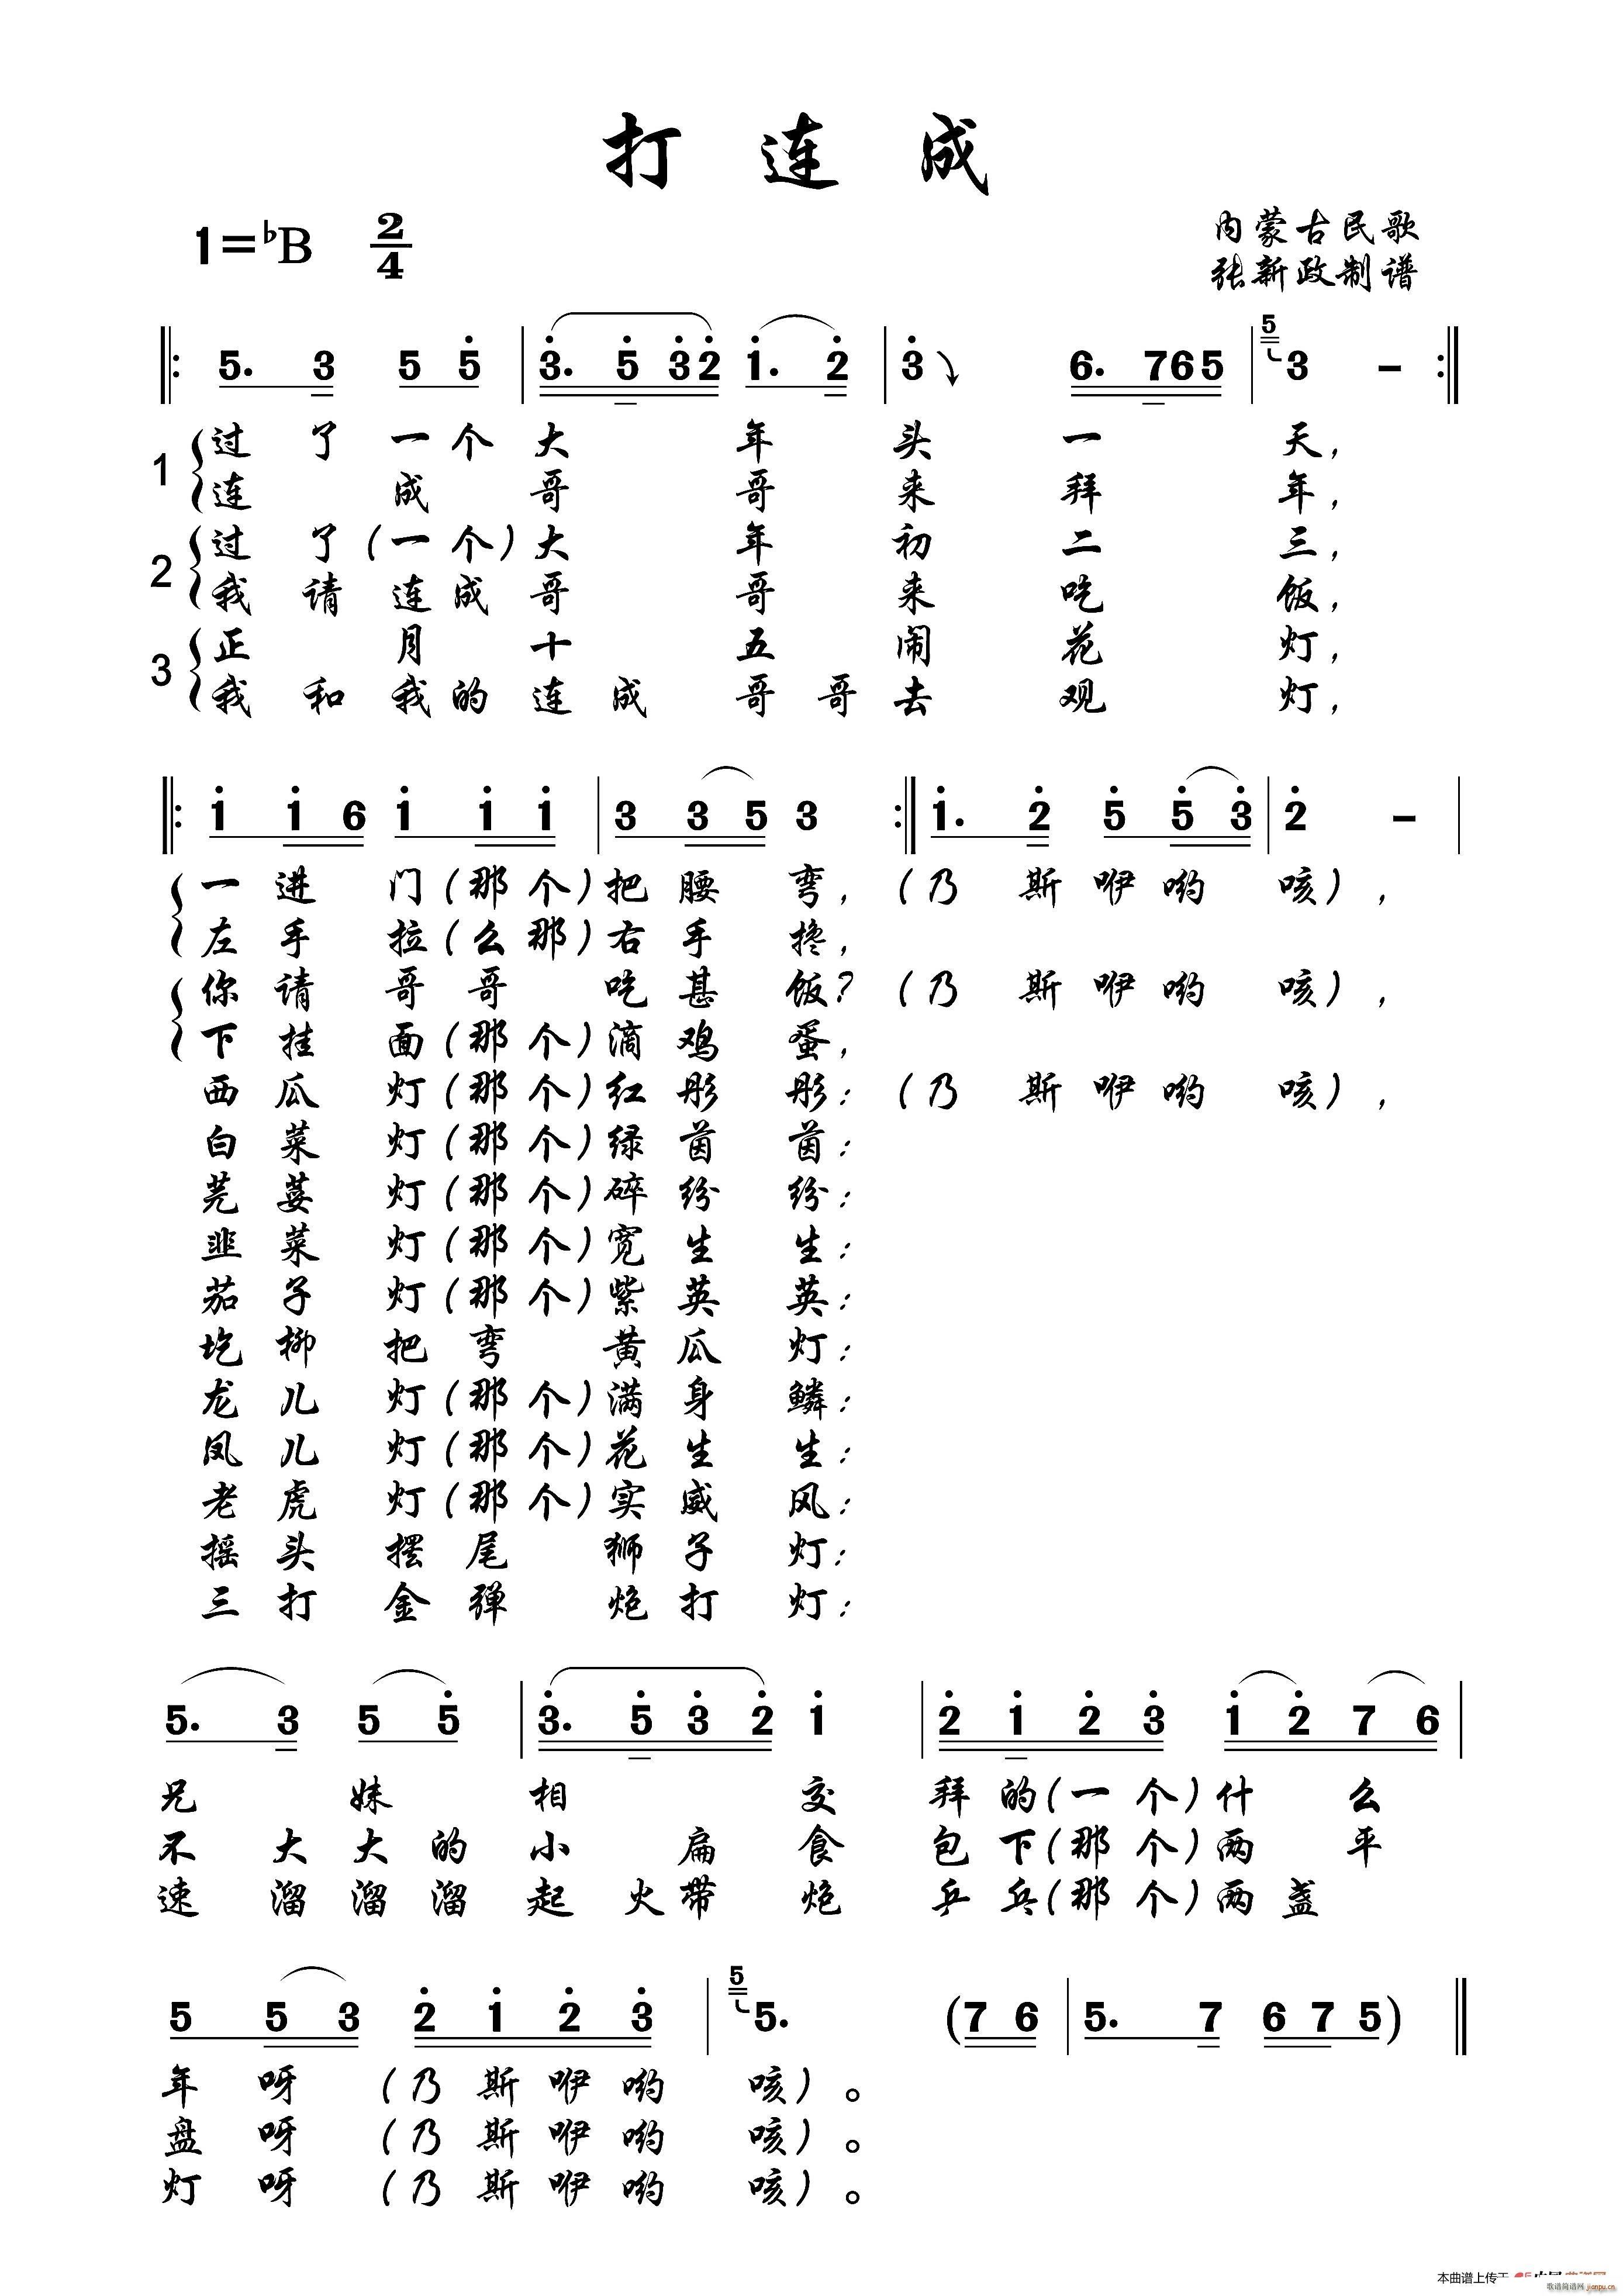 打连成
1=♭B 2/4
内蒙古民歌
张新政制谱
5. 3 5 5 3. 5 3 2 1. 2 3 6. 7 6 5 5 3 –
1 过了一个大年头一天，
连成哥哥来拜年，
2 过了（一个）大年初二三，
我请连成哥哥来吃饭，
3 正月十五闹花灯，
我和我的连成哥哥去观灯，
1 1 6 1 1 1 3 3 5 3 1. 2 5 5 3 2 –
一进门（那个）把腰弯，（乃斯咿哟咳），
左手拉（么那）右手搀，
你请哥哥吃甚饭？（乃斯咿哟咳），
下挂面（那个）滴鸡蛋，
西瓜灯（那个）红彤彤：（乃斯咿哟咳），
白菜灯（那个）绿茵茵：
芫荽灯（那个）碎纷纷：
韭菜灯（那个）宽生生：
茄子灯（那个）紫英英：
圪柳把弯黄瓜灯：
龙儿灯（那个）满身鳞：
凤儿灯（那个）花生生：
老虎灯（那个）实威风：
摇头摆尾狮子灯：
三打金弹炮打灯：
5. 3 5 5 3. 5 3 2 1 2 1 2 3 1 2 7 6
兄妹相交拜的（一个）什么
不大大的小扁食包下（那个）两平
速溜溜溜起火带炮乒乓（那个）两盏
5 5 3 2 1 2 3 5 5. (7 6 5. 7 6 7 5)
年呀（乃斯咿哟咳）。
盘呀（乃斯咿哟咳）。
灯呀（乃斯咿哟咳）。
本曲谱上传于
歌谱简谱网 jianpu.cn